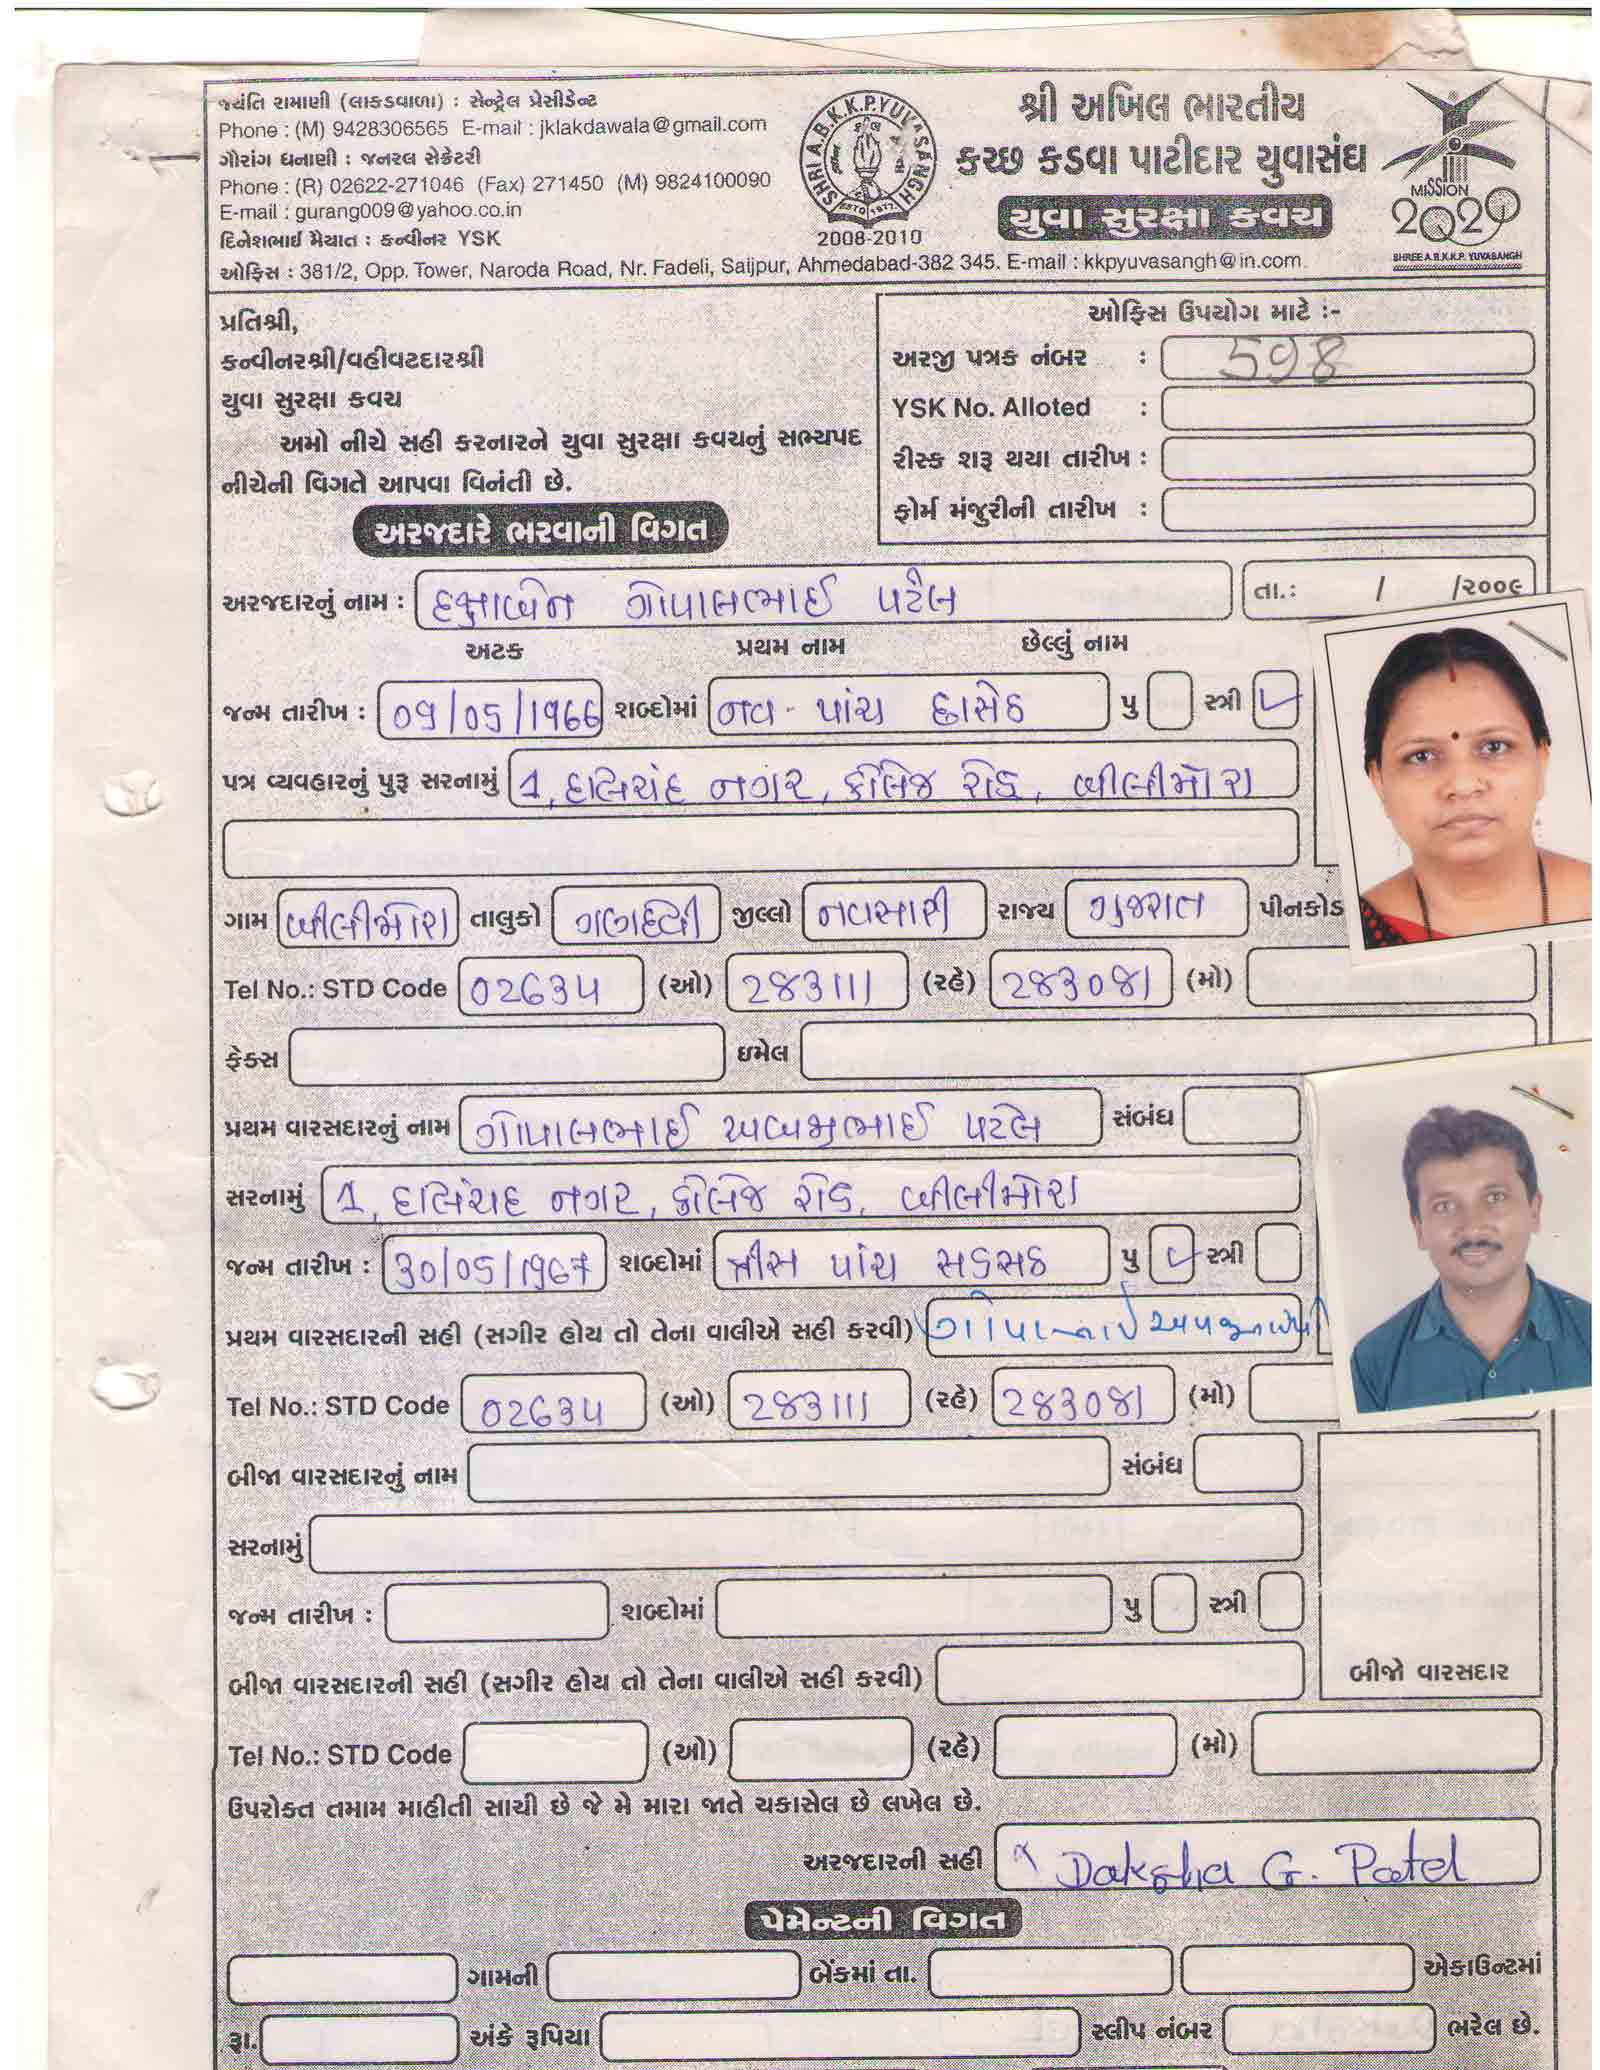 જયંતિ રામાણી (લાકડવાળા) : સેન્ટ્રેલ પ્રેસીડેન્ટ
Phone : (M) 9428306565 E-mail : jklakdawala@gmail.com
ગૌરાંગ ધનાણી : જનરલ સેક્રેટરી
Phone : (R) 02622-271046 (Fax) 271450 (M) 9824100090
E-mail : gurang009@yahoo.co.in
દિનેશભાઈ મૈયાત : કન્વીનર YSK
SHRI A.B.K.K.P. YUVASANGH
ESTD 1977
2008-2010
શ્રી અખિલ ભારતીય
કચ્છ કડવા પાટીદાર યુવાસંઘ
યુવા સુરક્ષા કવચ
MISSION
2020
SHREE A.B.K.K.P. YUVASANGH
ઓફિસ : 381/2, Opp. Tower, Naroda Road, Nr. Fadeli, Saijpur, Ahmedabad-382 345. E-mail : kkpyuvasangh@in.com
પ્રતિશ્રી,
કન્વીનરશ્રી/વહીવટદારશ્રી
યુવા સુરક્ષા કવચ
અમો નીચે સહી કરનારને યુવા સુરક્ષા કવચનું સભ્યપદ
નીચેની વિગતે આપવા વિનંતી છે.
ઓફિસ ઉપયોગ માટે :-
અરજી પત્રક નંબર : 598
YSK No. Alloted :
રીસ્ક શરૂ થયા તારીખ :
ફોર્મ મંજુરીની તારીખ :
અરજદારે ભરવાની વિગત
અરજદારનું નામ : દક્ષાબેન ગોપાલભાઈ પટેલ તા.: / /૨૦૦૯
અટક પ્રથમ નામ છેલ્લું નામ
જન્મ તારીખ : 09/05/1966 શબ્દોમાં નવ - પાંચ છાસેઠ પુ સ્ત્રી ✓
પત્ર વ્યવહારનું પુરૂ સરનામું 1, દલિચંદ નગર, કોલેજ રોડ, બીલીમોરા
ગામ બીલીમોરા તાલુકો ગણદેવી જીલ્લો નવસારી રાજ્ય ગુજરાત પીનકોડ
Tel No.: STD Code 02634 (ઓ) 283111 (રહે) 283081 (મો)
ફેક્સ ઇમેલ
પ્રથમ વારસદારનું નામ ગોપાલભાઈ અબજીભાઈ પટેલ સંબંધ
સરનામું 1, દલિચંદ નગર, કોલેજ રોડ, બીલીમોરા
જન્મ તારીખ : 30/05/1967 શબ્દોમાં ત્રીસ પાંચ સડસઠ પુ ✓ સ્ત્રી
પ્રથમ વારસદારની સહી (સગીર હોય તો તેના વાલીએ સહી કરવી)
Tel No.: STD Code 02634 (ઓ) 283111 (રહે) 283081 (મો)
બીજા વારસદારનું નામ સંબંધ
સરનામું
જન્મ તારીખ : શબ્દોમાં પુ સ્ત્રી
બીજા વારસદારની સહી (સગીર હોય તો તેના વાલીએ સહી કરવી)
બીજો વારસદાર
Tel No.: STD Code (ઓ) (રહે) (મો)
ઉપરોક્ત તમામ માહીતી સાચી છે જે મે મારા જાતે ચકાસેલ છે લખેલ છે.
અરજદારની સહી x Daksha G. Patel
પેમેન્ટની વિગત
ગામની બેંકમાં તા. એકાઉન્ટમાં
રૂા. અંકે રૂપિયા સ્લીપ નંબર ભરેલ છે.